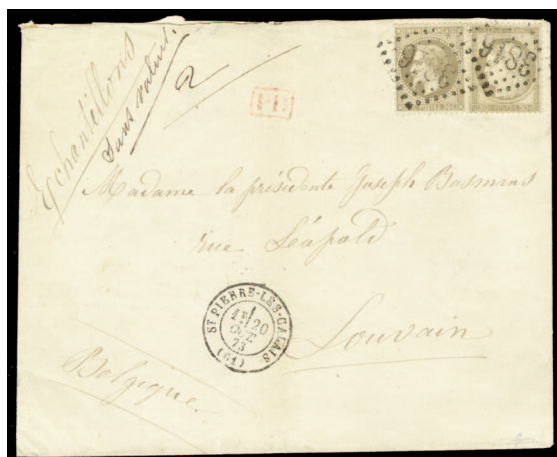 Echantillons
Sans valeur.
2
PD
3816
3816
Madame la présidente Joseph Bosmans
rue Léopold
Louvain
Belgique.
ST PIERRE-LES-CALAIS
20
OCT
73
(61)